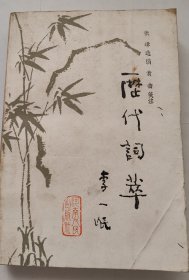 张璋选编 黄畲笺注
歷代詞萃
李一氓